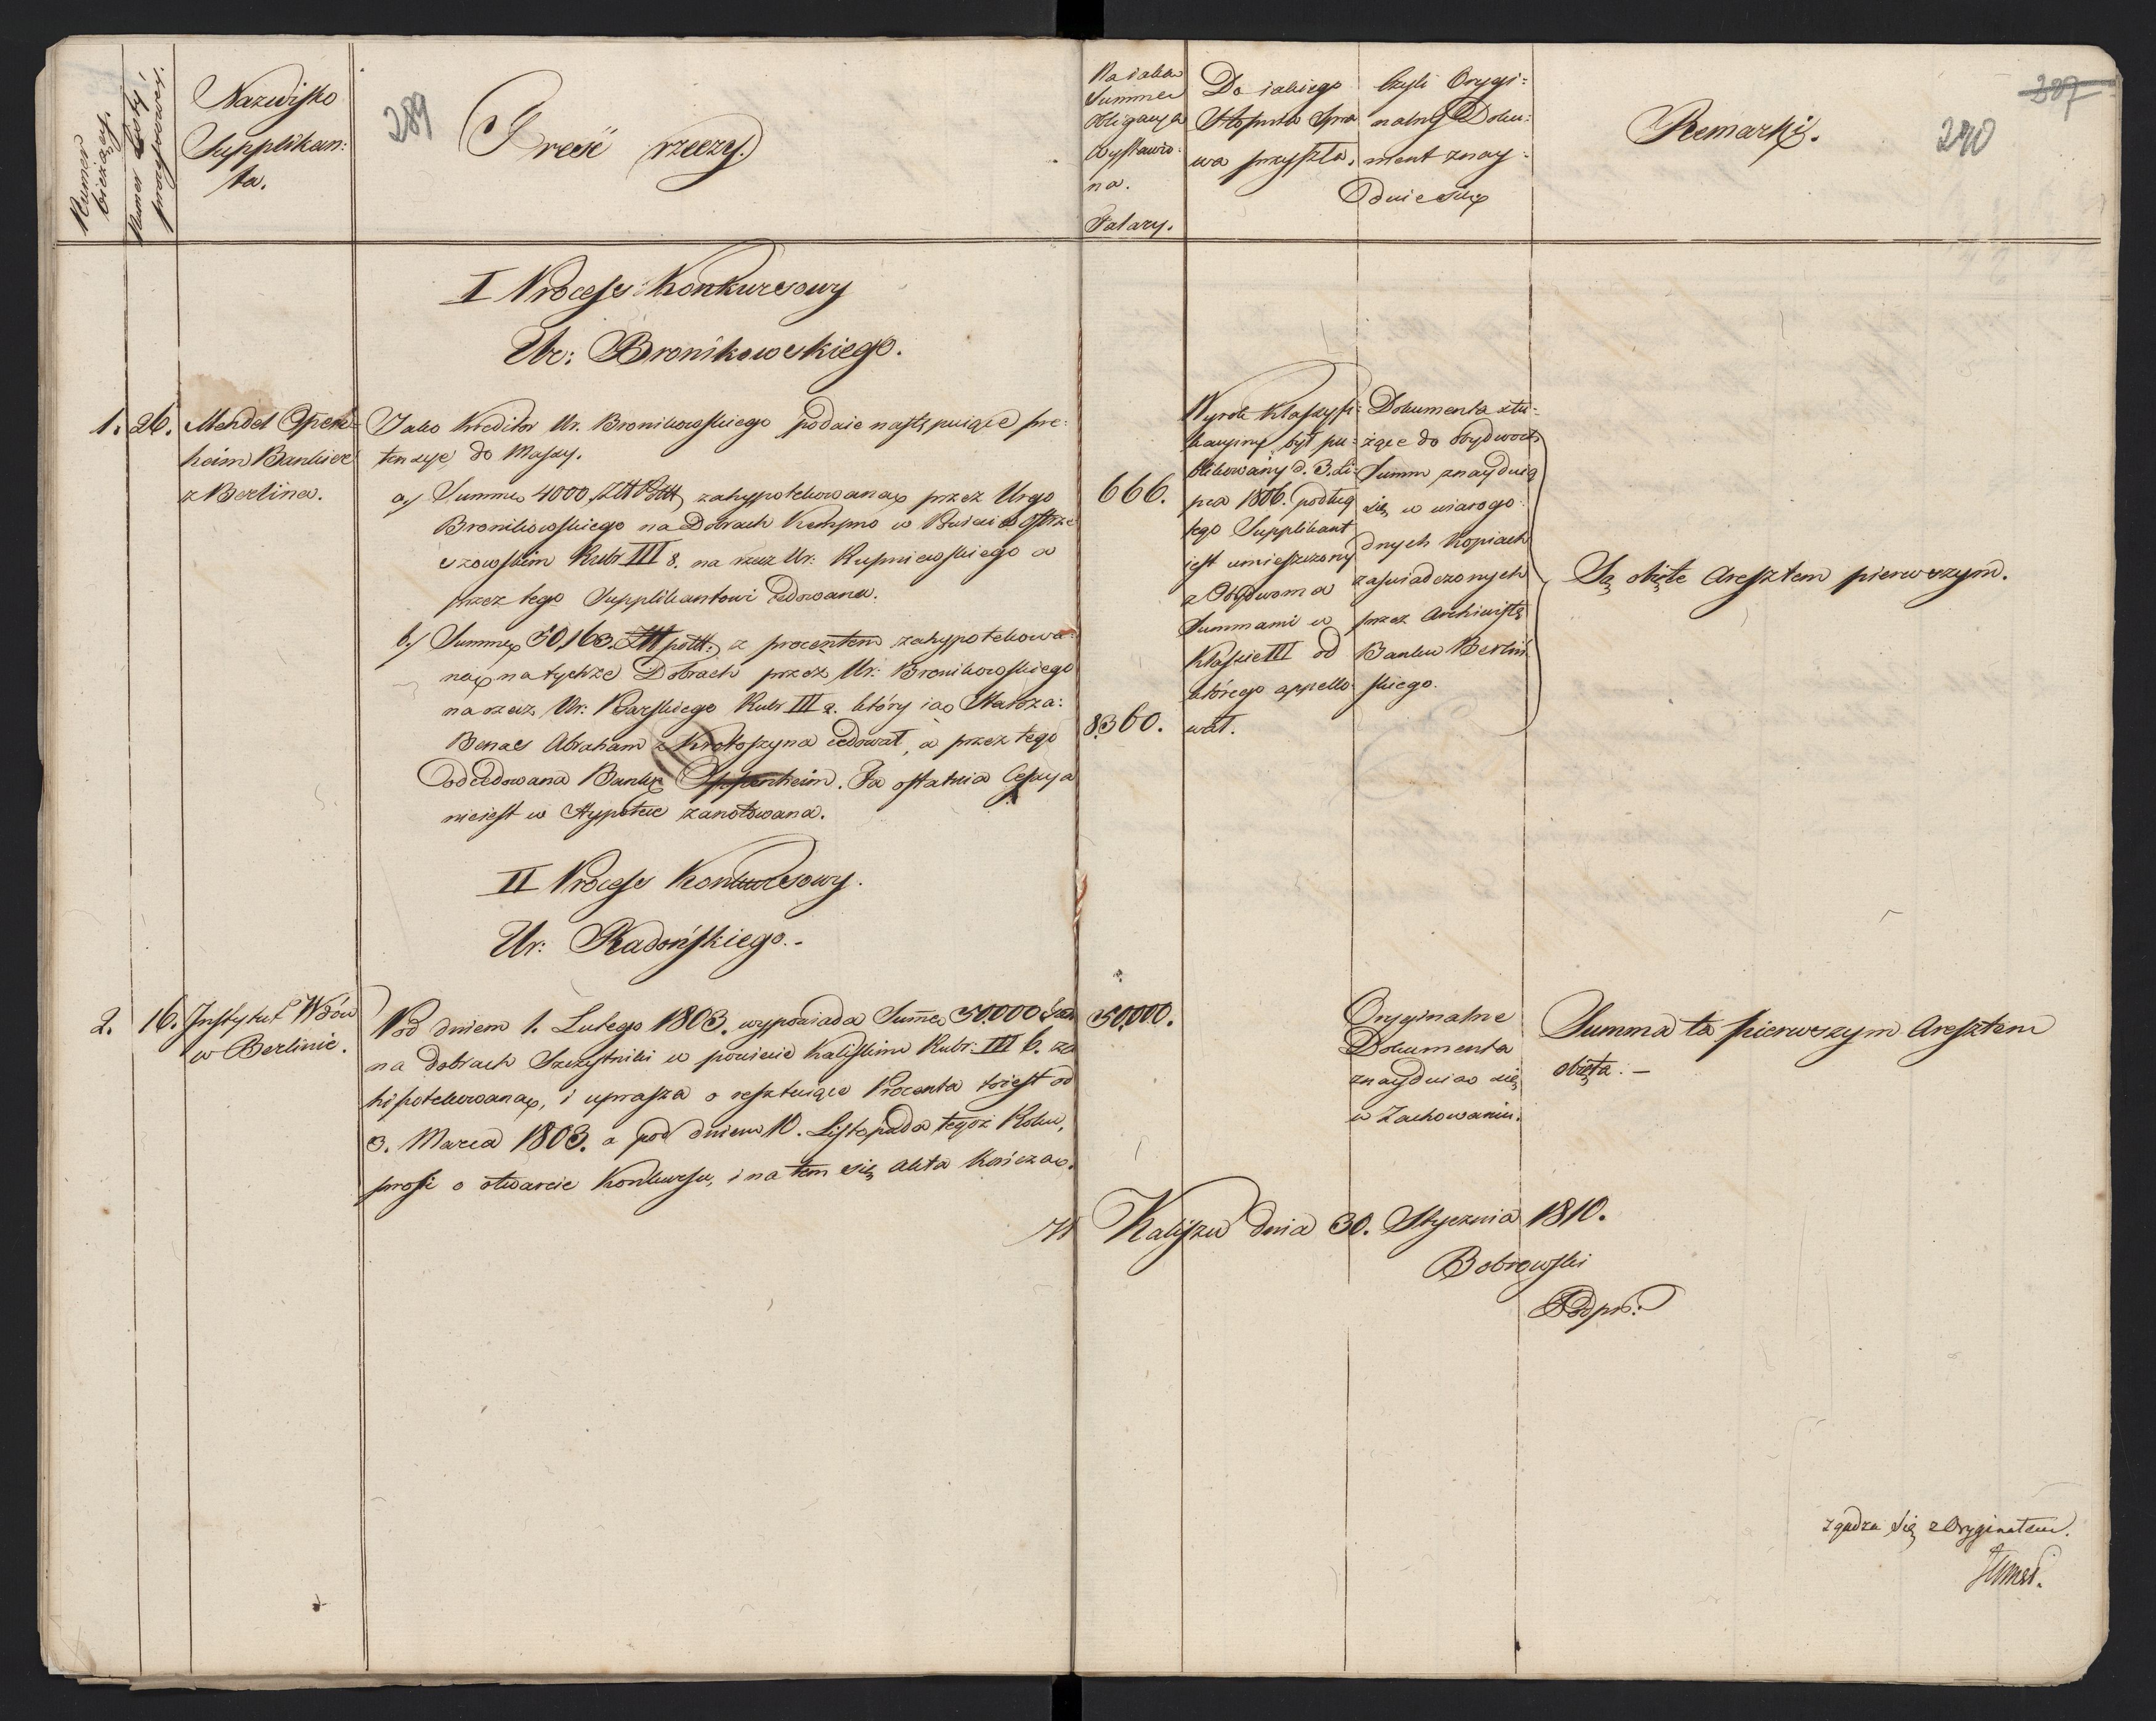 Numer
bieżący.
Numer Listy
prassowey.
Nazwisko
Supplikan:
ta.
289
Treść rzeczy.
Na iaka
Summa
Obligacya
wystawio:
na.
Talary.
Do iakiego
Stopnia Spra
wa przyszła.
Czyli Orygi:
nalny Doku:
ment znay:
duie się
Remarki.
287
290
I Process Konkursowy
Ur: Bronikowskiego.
1. 26. Mendel Oppen
heim Bankier
z Berlina.
Jako Kreditor Ur. Bronikowskiego podaie następuiące pre:
tensye do Massy.
a/ Summę 4000 zahypotekowaną przez Urgo
Bronikowskiego na Dobrach Kempno w Powiecie Ostrze
szowskim Rubr III 8. na rzecz Ur: Rupniewskiego a
przez tego Supplikantowi cedowana.
b/ Summę 50,163. z procentem zahypotekowa:
ną na tychże Dobrach przez Ur: Bronikowskiego
na rzecz Ur: Karskiego Rubr III 2. który ią Staroza:
Benas Abraham z Krotoszyna cedował, a przez tego
odcedowana Bankr Oppenheim. Ta ostatnia Cessya
nieiest w Hypotece zanotowana.
666.
8360.
Wyrok Klassyfi:
kacyiny był pu:
blikowany d. 3. Li:
pca 1806. podług
tego Supplikant
iest umieszczony
z Obydwoma
Summami w
Klassie III od
którego appello:
wał.
Dokumenta słu:
żące do obydwoch
Summ znayduią
się w wiarogo:
dnych Kopiach
zaświadczonych
przez Archiwistę
Banku Berliń
skiego.
Są obięte Aresztem pierwszym.
II Process Konkursowy.
Ur: Radońskiego.-
2. 16. Instytut Wdów
w Berlinie.
Pod dniem 1. Lutego 1803. wypowiada Summę 50.000
na dobrach Szczytniki w powiecie Kaliskim Rubr: III 6. za
hipotekowaną, i uprasza o resztuiące Procenta toiest od
3. Marca 1803. a pod dniem 10. Listopada tegoż Roku,
prosi o otwarcie Konkursu, i na tem się Akta kończą.
50,000.
Oryginalne
Dokumenta
znayduią się
w Zachowaniu.
Summa ta pierwszym Aresztem
obięta. -
W Kaliszu dnia 30. Stycznia 1810.
Bobrowski
Podpis:
zgadza się z Oryginałem.